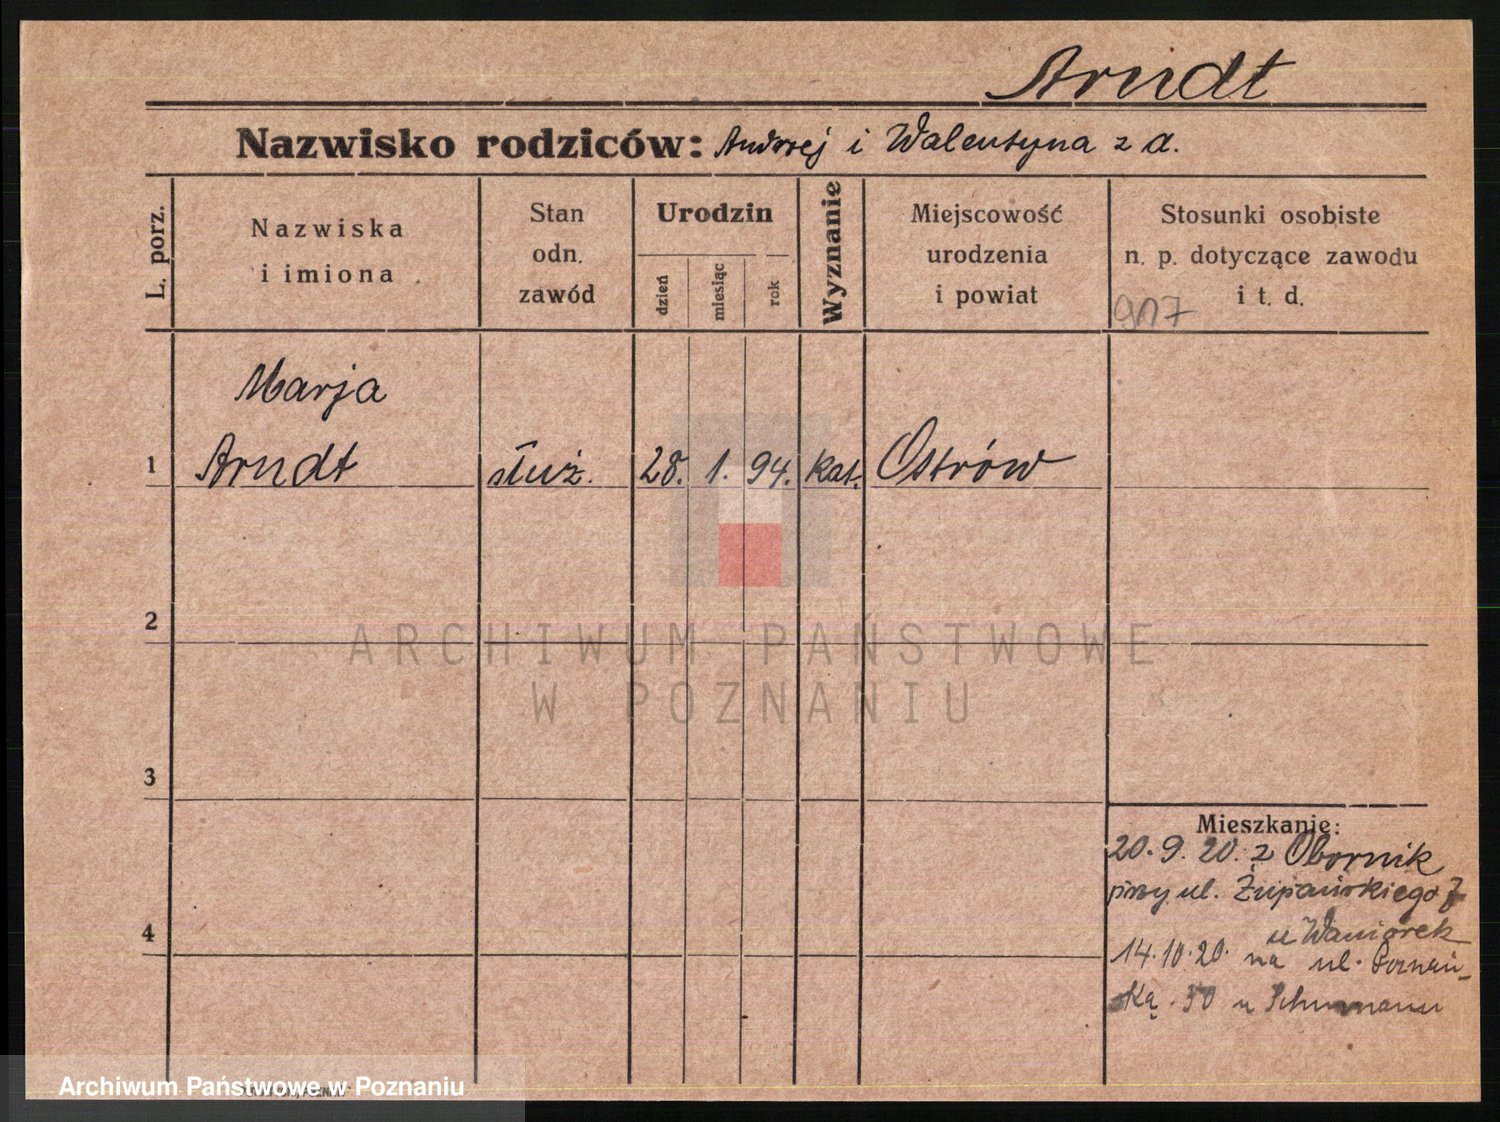 Arndt
Nazwisko rodziców: Andrzej i Walentyna z d.
L. porz.
Nazwiska
i imiona
Stan
odn.
zawód
Urodzin
dzień
miesiąc
rok
Wyznanie
Miejscowość
urodzenia
i powiat
Stosunki osobiste
n. p. dotyczące zawodu
i t. d.
917
Marja
1 Arndt służ. 28. 1. 94. kat. Ostrów
2
3
4
ARCHIWUM PAŃSTWOWE
W POZNANIU
Mieszkanie:
20.9.20. z Obornik
przy ul. Żupańskiego 7
u Waniorek
14.10.20. na ul. Poznań-
ską. 50 u Schumann
Archiwum Państwowe w Poznaniu